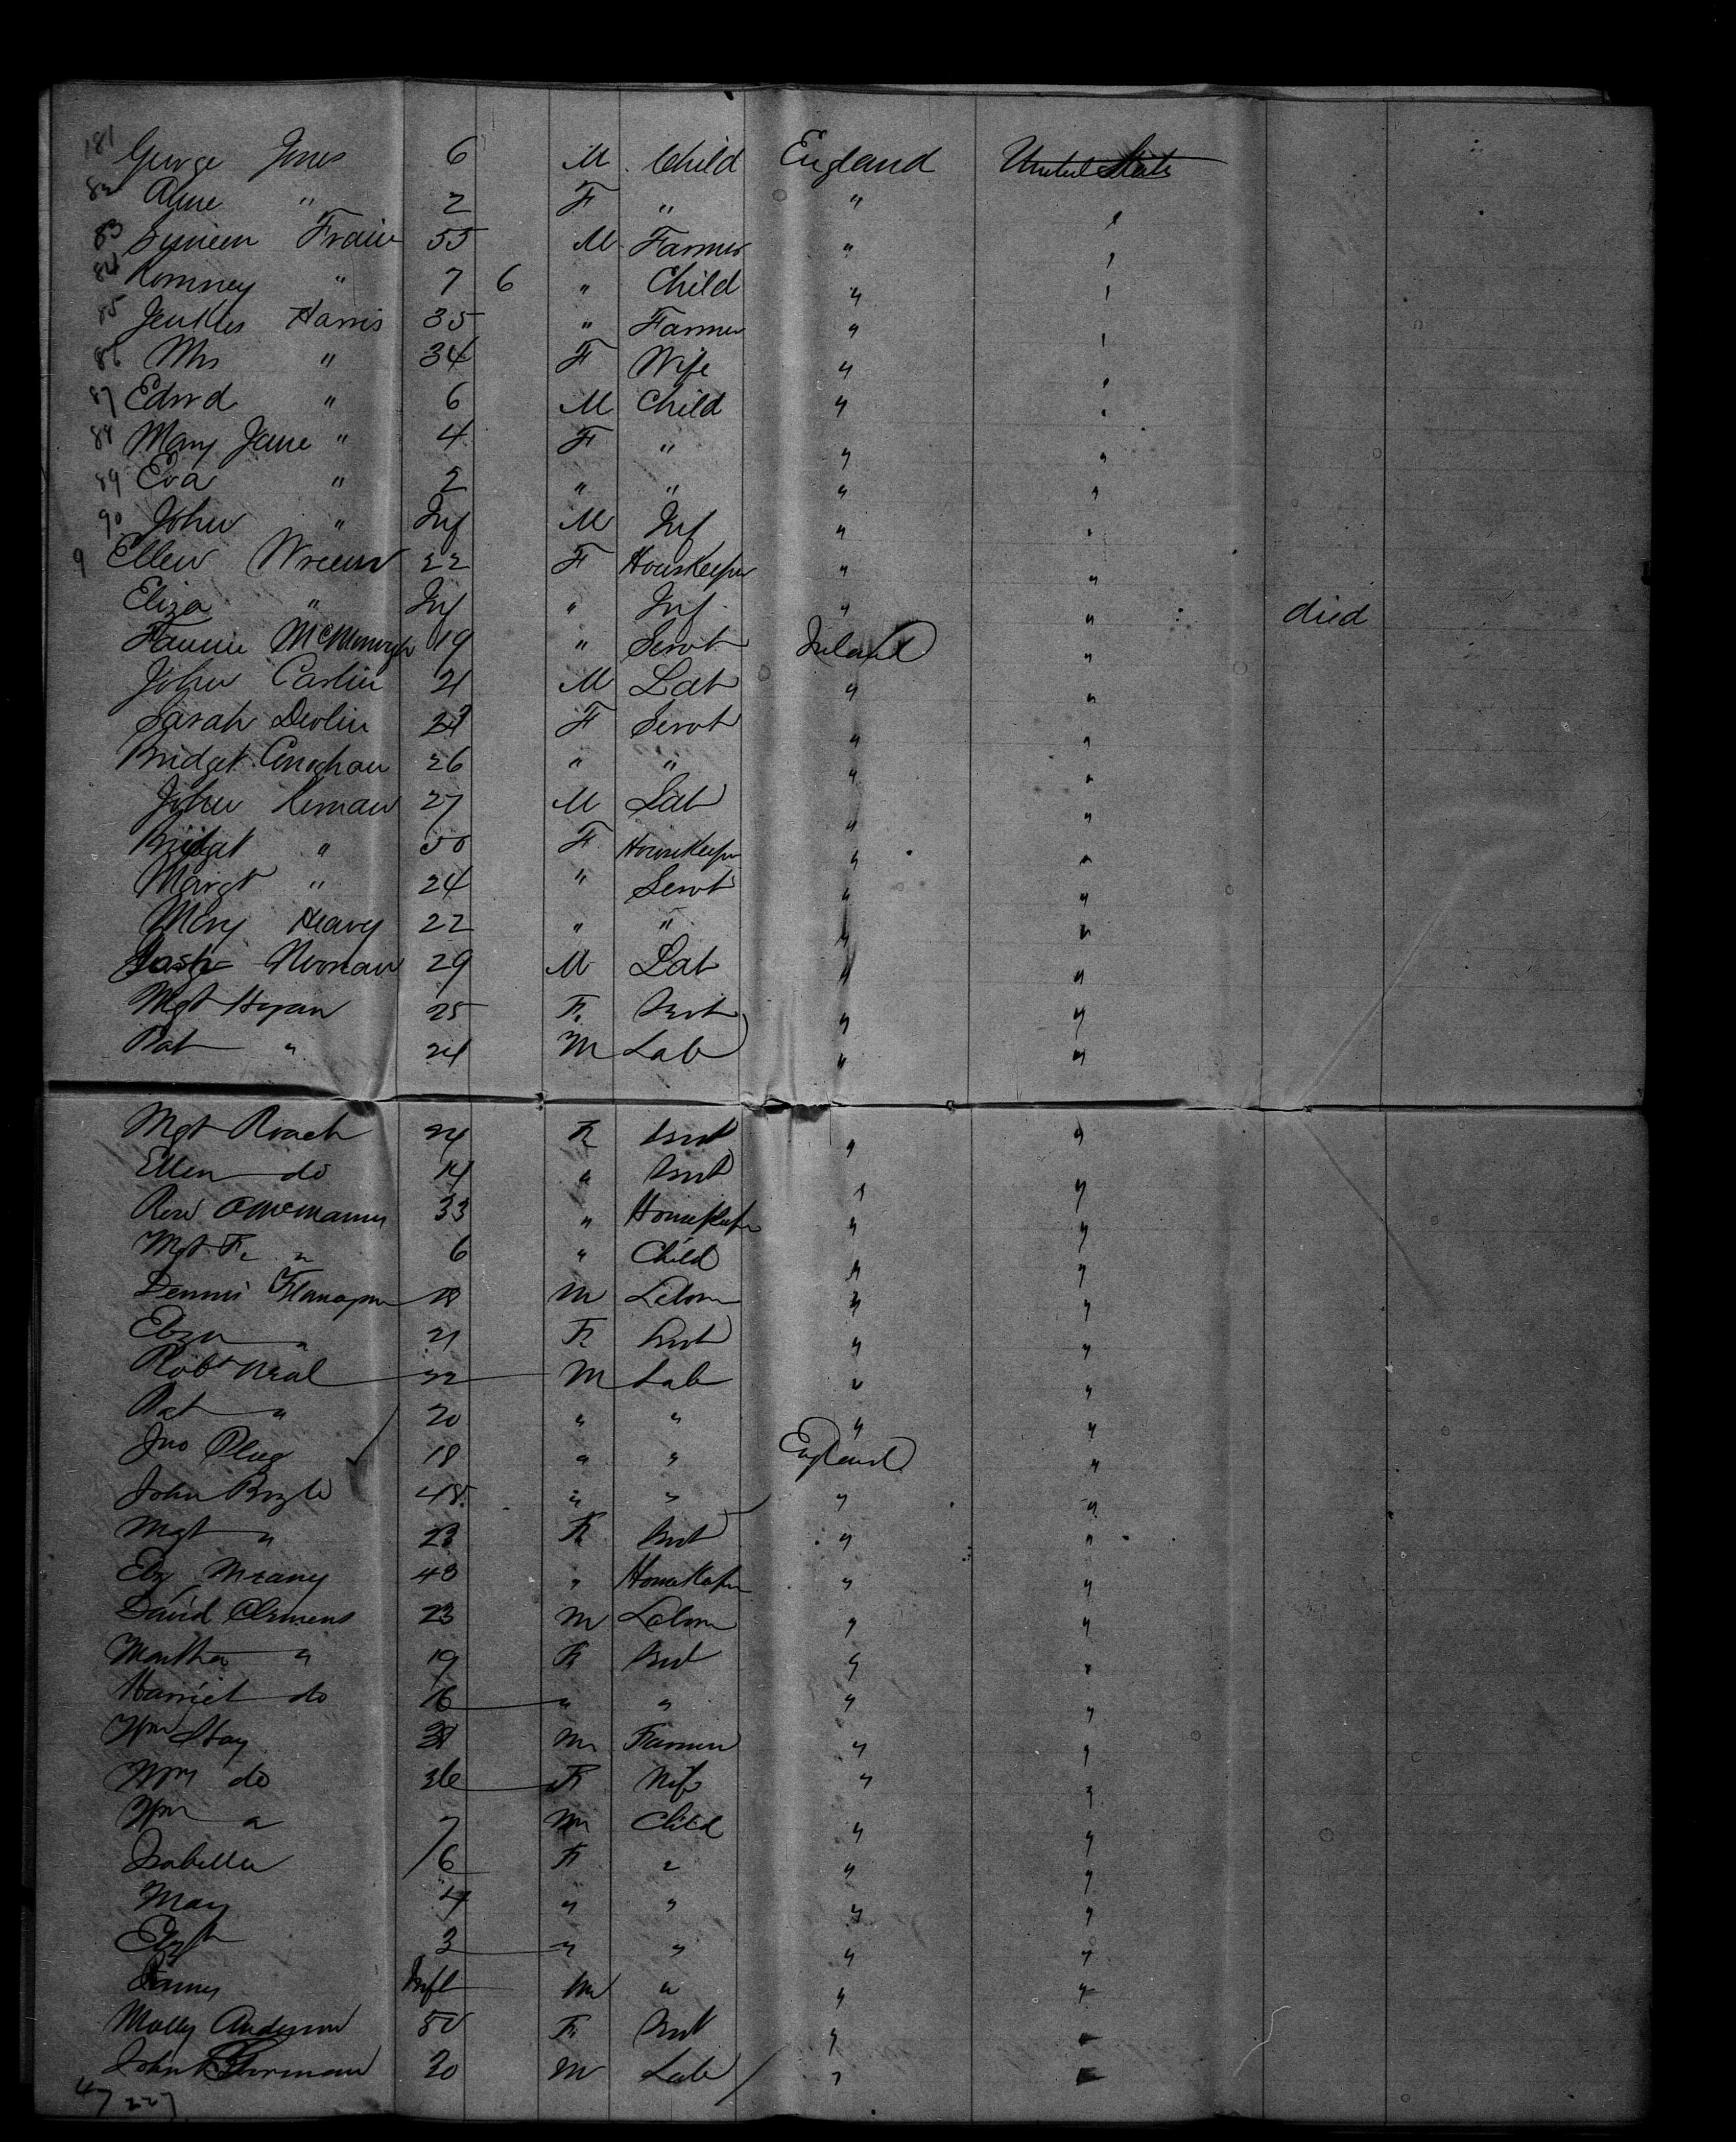 181 George Jones 6 M Child England United States
82 Anne " 2 F " " "
83 Simeon 55 M Farmer " "
84 Romney " 7 6 " Child " "
85 Harris 35 " Farmer " "
86 Mrs " 34 F Wife " "
87 Edwd " 6 M Child " "
88 Mary Jane " 4 F " " "
89 Eva " 2 " " " "
90 John " Inf M Inf " "
9 Ellen 22 F Housekeeper " "
Eliza " Inf " Inf " " died
Fannie 19 " Servt Ireland "
John Carlin 21 M Lab " "
Sarah Devlin 23 F Servt " "
Bridget 26 " " " "
John Kernan 27 M Lab " "
Bridget " 50 F Housekeeper " "
Margt " 24 " Servt " "
Mary Heavy 22 " " " "
Noonan 29 M Lab " "
Mgt 25 F Servt " "
Pat " 24 M Lab " "
Mgt Roach 24 F Servt " "
Ellen do 14 " Servt " "
Rose 33 " Housekeeper " "
Mgt F. " 6 " Child " "
Dennis Flanagan 18 M Labour " "
Eliza " 21 F Servt " "
Robt Neal 22 M Lab " "
Pat " 20 " " " "
Jno 18 " " England "
John 48 " " " "
Mgt " 23 F Servt " "
Elz Meany 43 " Housekeeper " "
David Clemens 23 M Labour " "
Martha " 19 F Servt " "
Harriet do 16 " " " "
Wm Hay M Farmer " "
Wm do 36 F Wife " "
Wm " 7 M Child " "
Isabella 6 F " " "
Mary 4 " " " "
Elzth 3 " " " "
Inft M " " "
Molly Anderson 50 F Servt " "
John 30 M Lab " "
47 227